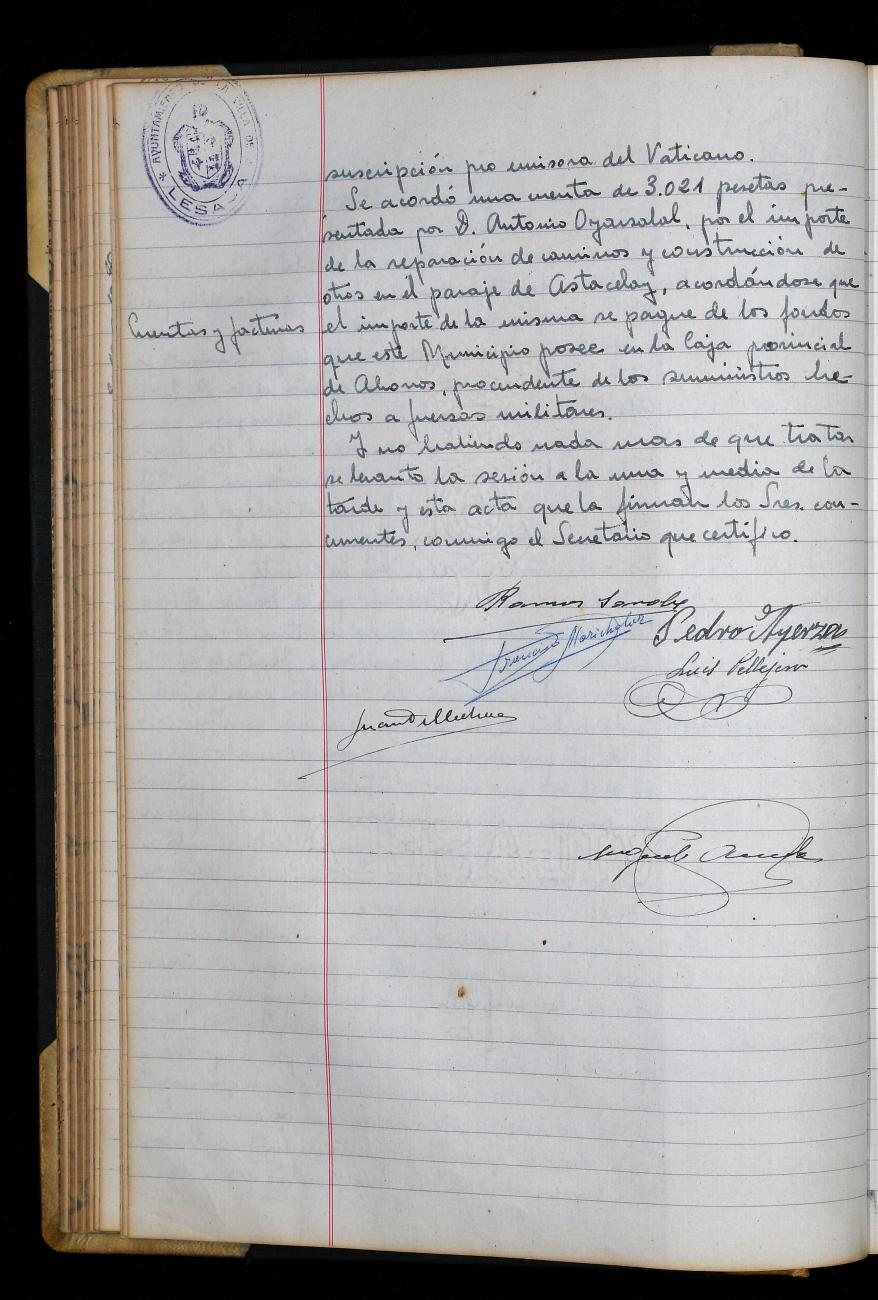 AYUNTAMIENTO DE LA VILLA DE
LESACA
suscripción pro emisora del Vaticano.
Se acordó una cuenta de 3.021 pesetas pre-
sentada por D. Antonio Oyarzabal, por el importe
de la reparación de caminos y construcción de
otros en el paraje de Astacelay, acordándose que
Cuentas y facturas
el importe de la misma se pague de los fondos
que este Municipio posee en la Caja provincial
de Ahorros, procendente de los suministros he-
chos a fuerzas militares.
Y no habiendo nada mas de que tratar
se levanto la sesión a la una y media de la
tarde y esta acta que la firman los Sres. con-
currentes, conmigo el Secretario que certifico.
Ramon
Francisco Marichalar
Pedro Ayerza
Luis Pellejero
Juan
Miguel